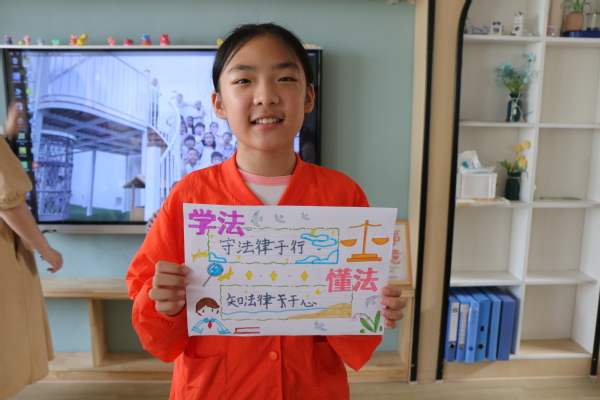 学法
守法律于行
懂法
知法律于心